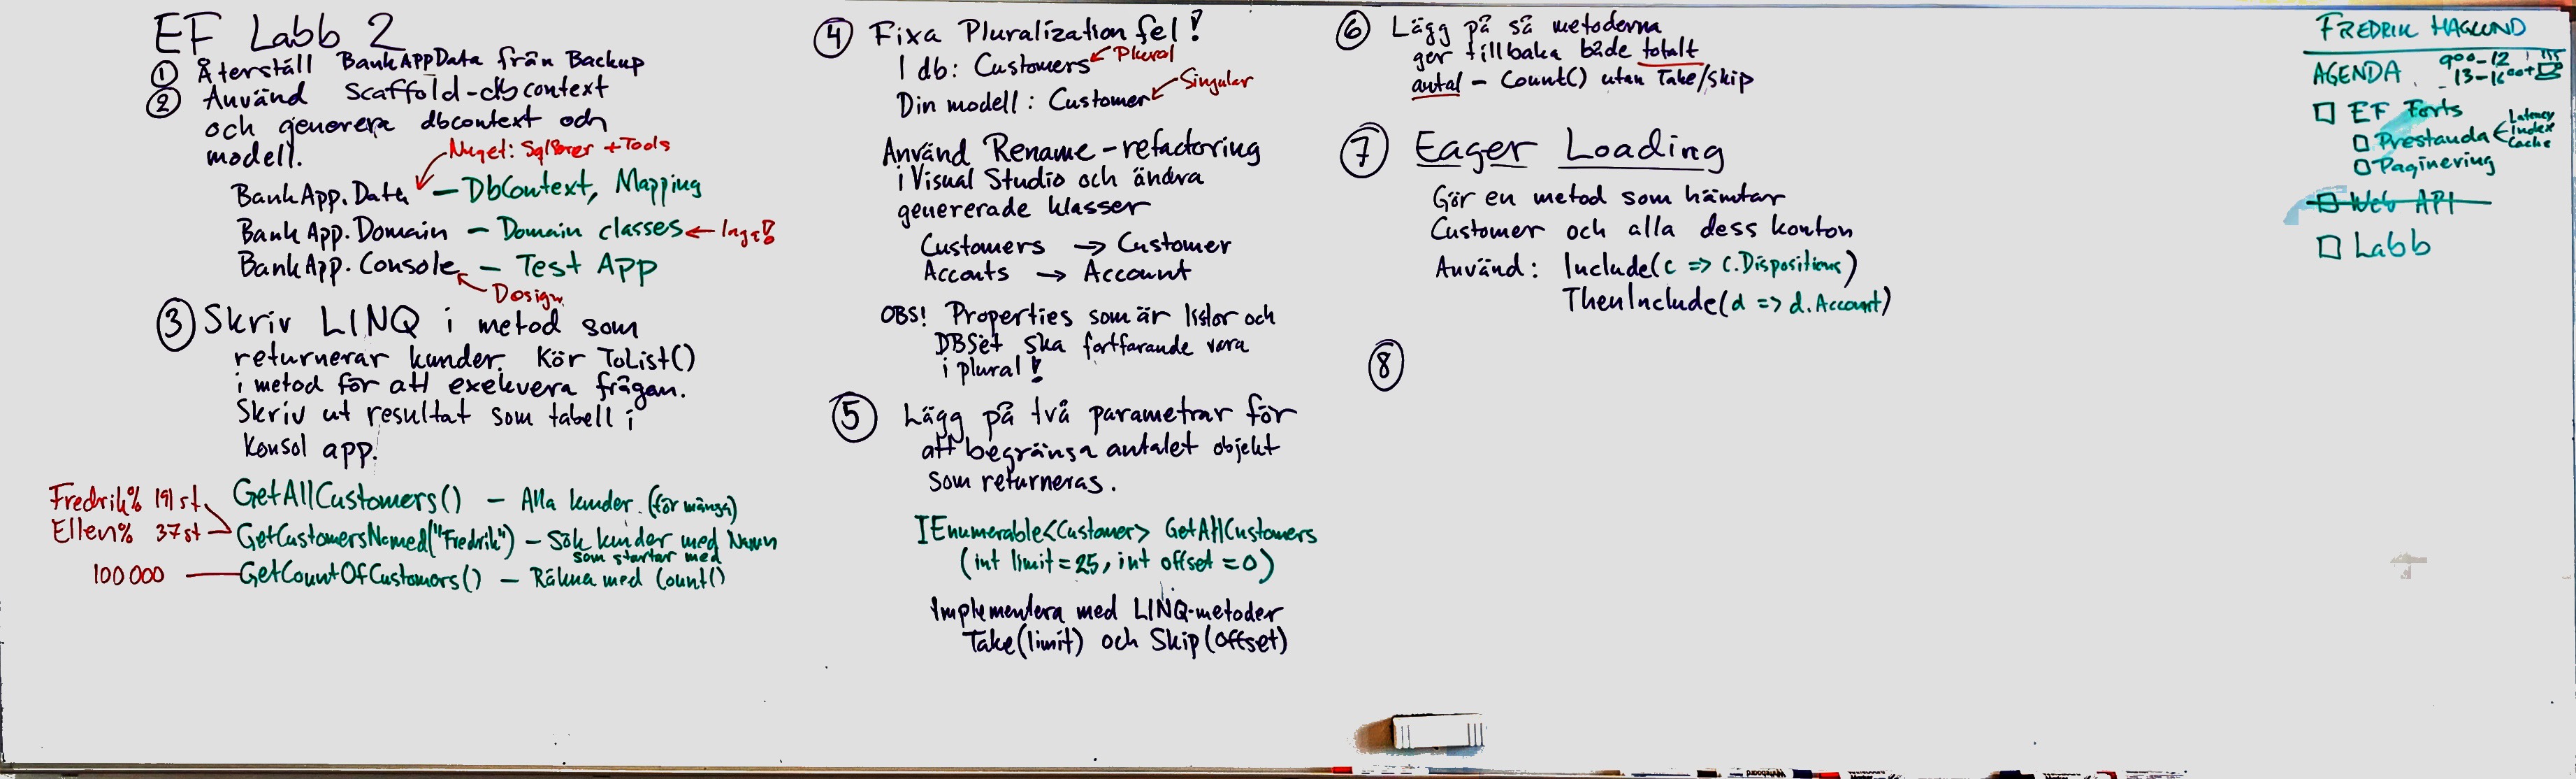 EF Labb 2
① Återställ BankAppData från Backup
② Använd Scaffold-dbcontext
och generera dbcontext och
modell.
Nuget: SqlServer + Tools
BankApp.Data – DbContext, Mapping
BankApp.Domain – Domain classes ← Inget!
BankApp.Console – Test App
Design
③ Skriv LINQ i metod som
returnerar kunder. Kör ToList()
i metod för att exekvera frågan.
Skriv ut resultat som tabell i
konsol app.
Fredrik% 191 st
Ellen% 37 st
GetAllCustomers() – Alla kunder. (för många)
GetCustomersNamed("Fredrik") – Sök kunder med Namn
som startar med
100 000 GetCountOfCustomers() – Räkna med Count()
④ Fixa Pluralization fel!
I db: Customers ← Plural
Din modell: Customer ← Singular
Använd Rename-refactoring
i Visual Studio och ändra
genererade klasser
Customers → Customer
Accouts → Account
OBS! Properties som är listor och
DBSet ska fortfarande vara
i plural!
⑤ Lägg på två parametrar för
att begränsa antalet objekt
som returneras.
IEnumerable<Customer> GetAllCustomers
(int limit=25, int offset=0)
Implementera med LINQ-metoder
Take(limit) och Skip(offset)
⑥ Lägg på så metoderna
ger tillbaka både totalt
antal – Count() utan Take/skip
⑦ Eager Loading
Gör en metod som hämtar
Customer och alla dess konton
Använd: Include(c => c.Dispositions)
ThenInclude(d => d.Account)
⑧
FREDRIK HAGLUND
AGENDA
9⁰⁰-12
13-16⁰⁰+
☐ EF Forts
☐ Prestanda
Latency
Index
Cache
☐ Paginering
☐ Web API
☐ Labb